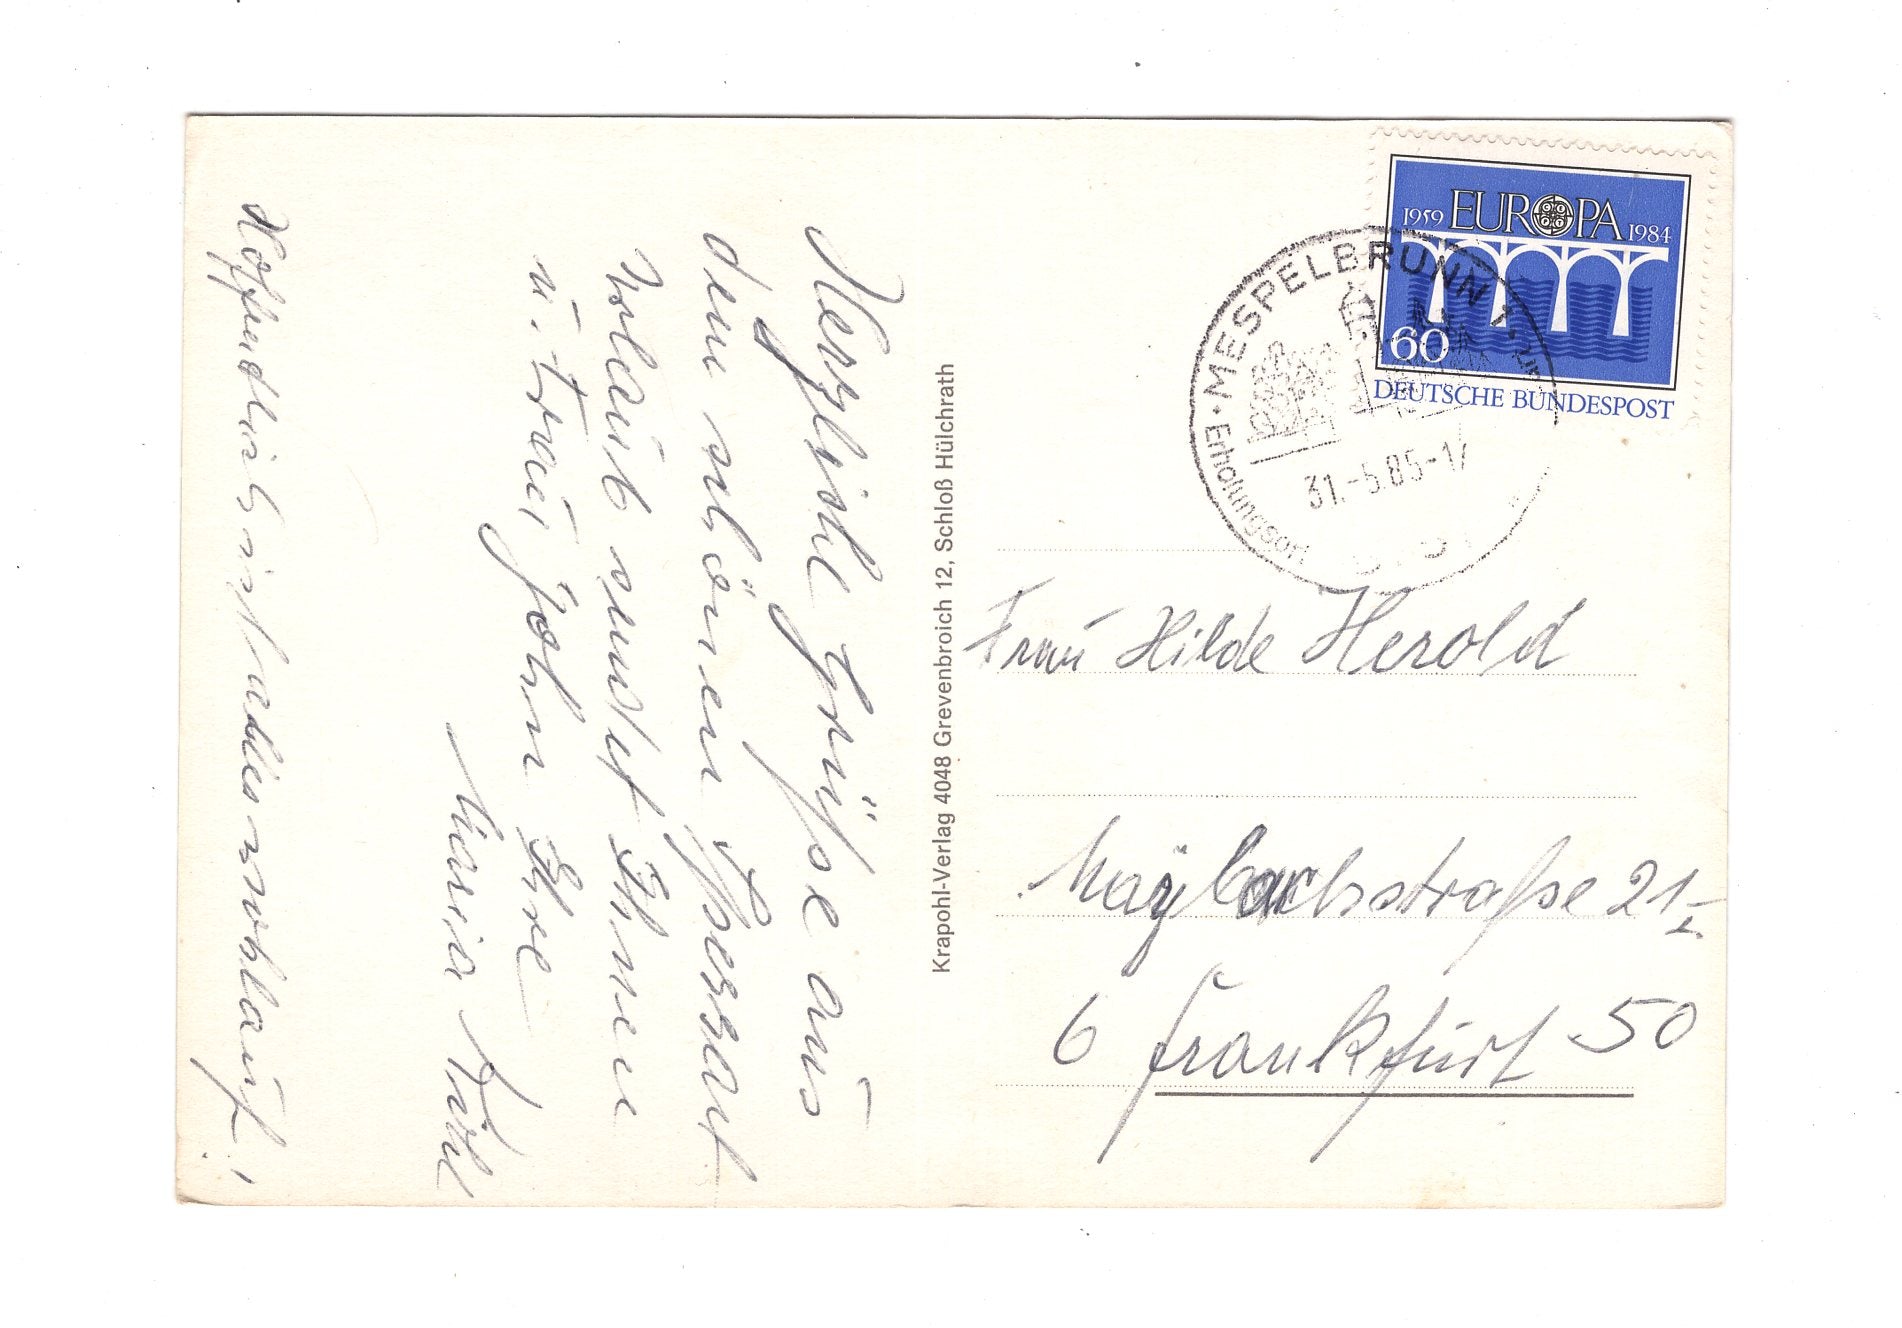 Herzliche Grüsse aus
dem schönen Spessart
Urlaub sendet Ihnen
u. Frau John Ihre
Maria
Hoffendlich ist alles wohlauf!
Krapohl-Verlag 4048 Grevenbroich 12, Schloß Hülchrath
1959 EUROPA 1984
60
DEUTSCHE BUNDESPOST
MESPELBRUNN 1
31.-5.85-17
Erholungsort
Frau Hilde Herold
Maybachstraße 21 I
6 Frankfurt 50